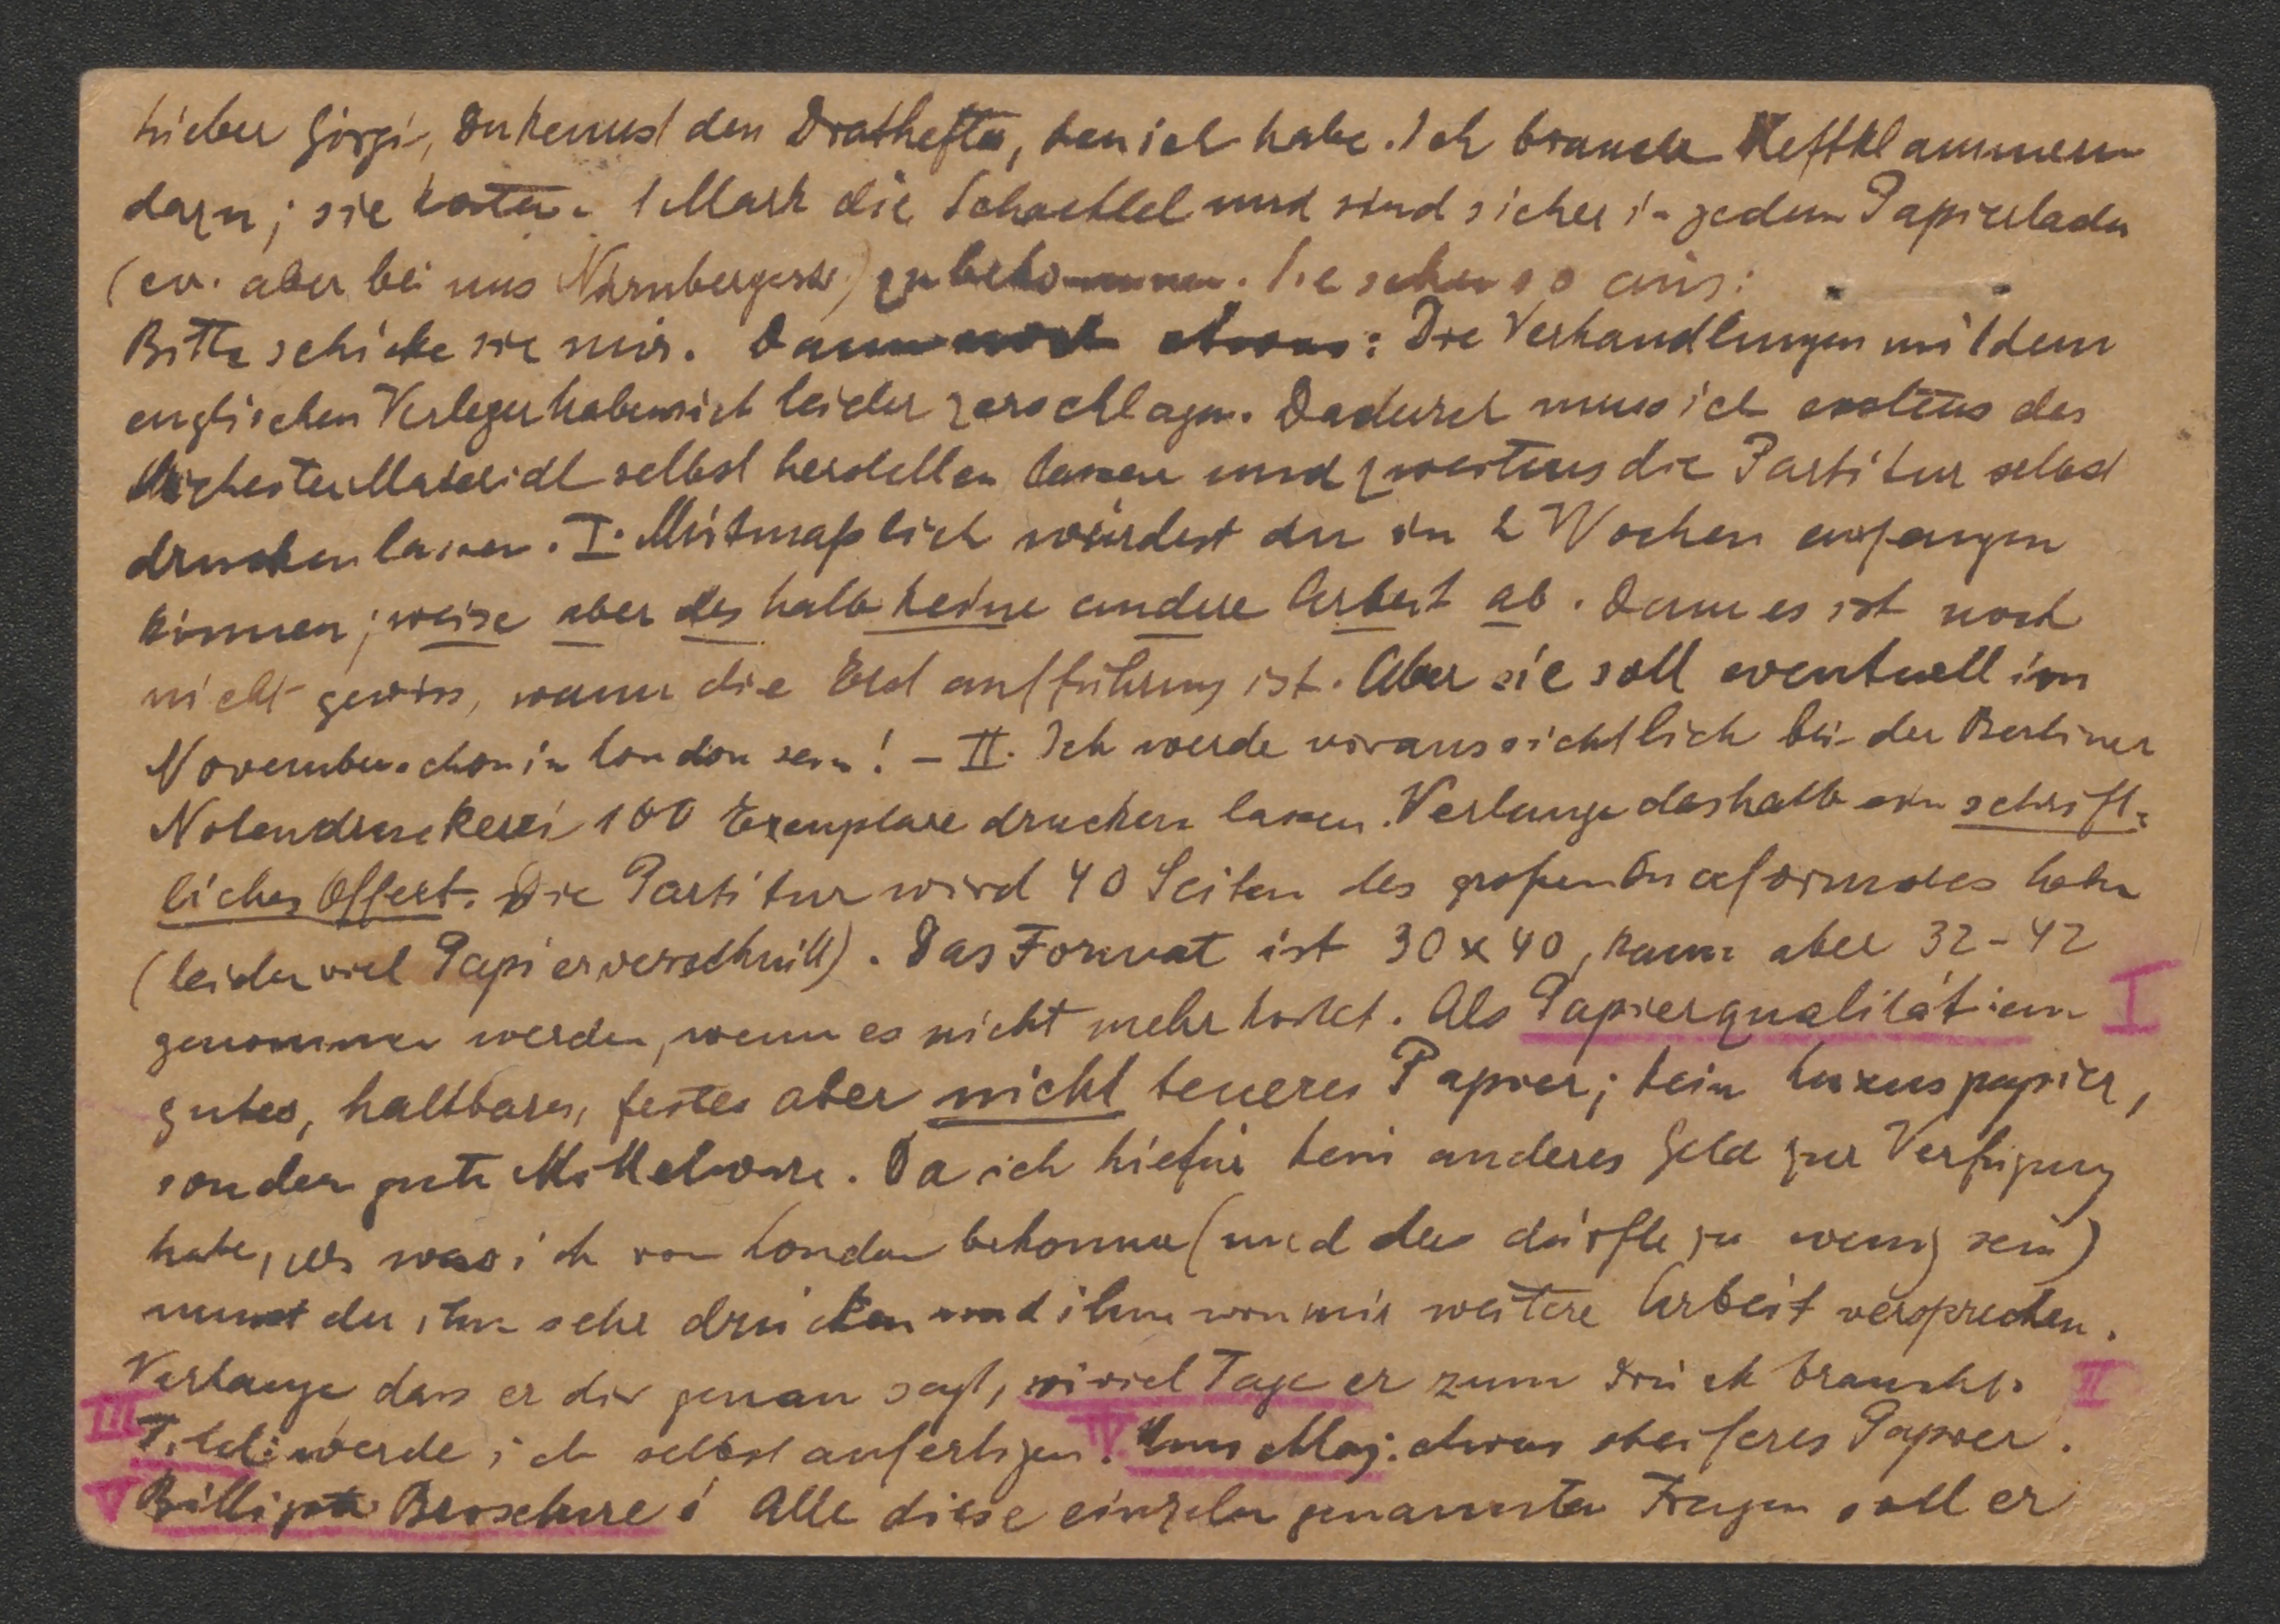 Lieber Görgi, Du kennst den Drathefter, den ich habe. Ich brauche Heftklammern
dazu; sie kosten 1 Mark die Schachtel und sind sicher in jedem Papierladen
(ev. aber bei uns Nürnbergerstr.) zu bekommen. Sie sehen so aus:
Bitte schicke sie mir. Dann noch etwas: Die Verhandlungen mit dem
englischen Verleger haben sich leider zerschlagen. Dadurch muss ich erstens das
OrchesterMaterial selbst herstellen lassen und zweitens die Partitur selbst
drucken lassen. I. Mutmaßlich würdest du in 2 Wochen anfangen
können; weise aber deshalb keine andere Arbeit ab. Denn es ist noch
nicht gewiss, wann die Erstaufführung ist. Aber sie soll eventuell im
November schon in London sein! – II. Ich werde voraussichtlich bei der Berliner
Notendruckerei 100 Exemplare drucken lassen. Verlange deshalb ein schrift=
liches Offert. Die Partitur wird 40 Seiten des großen formates haben
(leider viel Papierverschnitt). Das Format ist 30 x 40, kann aber 32–42
genommen werden, wenn es nicht mehr kostet. Als Papierqualität ein I
gutes, haltbares, festes aber nicht teueres Papier; kein Luxuspapier,
sondern gute Mittelware. Da ich hiefür kein anderes Geld zur Verfügung
habe, als was ich von London bekomme (und das dürfte zu wenig sein)
musst du ihn sehr drücken und ihm von mir weitere Arbeit versprechen.
Verlange dass er dir genau sagt, wieviel Tage er zum Druck braucht. II
III Titel: werde ich selbst anfertigen. IV. Umschlag: etwas steiferes Papier.
V Billigste Broschure! Alle diese einzeln genannten Fragen soll er